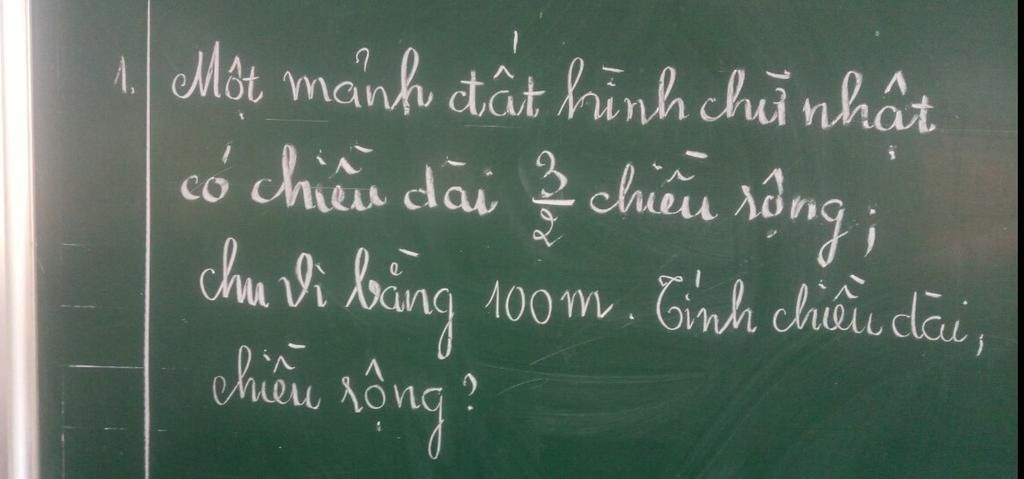 1. Một mảnh đất hình chữ nhật
có chiều dài 3/2 chiều rộng;
chu vi bằng 100m. Tính chiều dài,
chiều rộng?